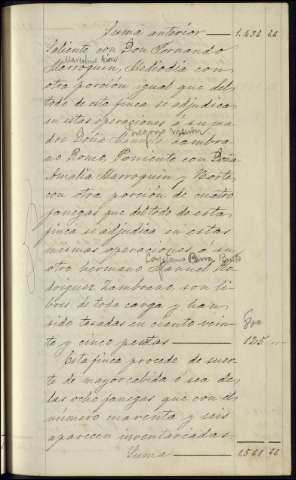 Suma anterior 1.436 22
Saliente con Don Fernando
Marroquin, Mediodia con
otra porción igual que del
todo de esta finca se adjudica
en estas operaciones á su ma-
dre Doña Zambra-
no Romo, Poniente con Doña
Amalia Marroquin y Norte
con otra porción de cuatro
fanegas que del todo de esta
finca se adjudica en estas
mismas operaciones á su
otro hermano Manuel Ro-
driguez Zambrano, son li-
bres de toda carga y han
sido tasadas en ciento vein-
te y cinco pesetas 125
Esta finca procede de suer-
te de mayor cabida ó sea de
las ocho fanegas que con el
número cuarenta y seis
aparecen inventariadas
Suma 1561 22